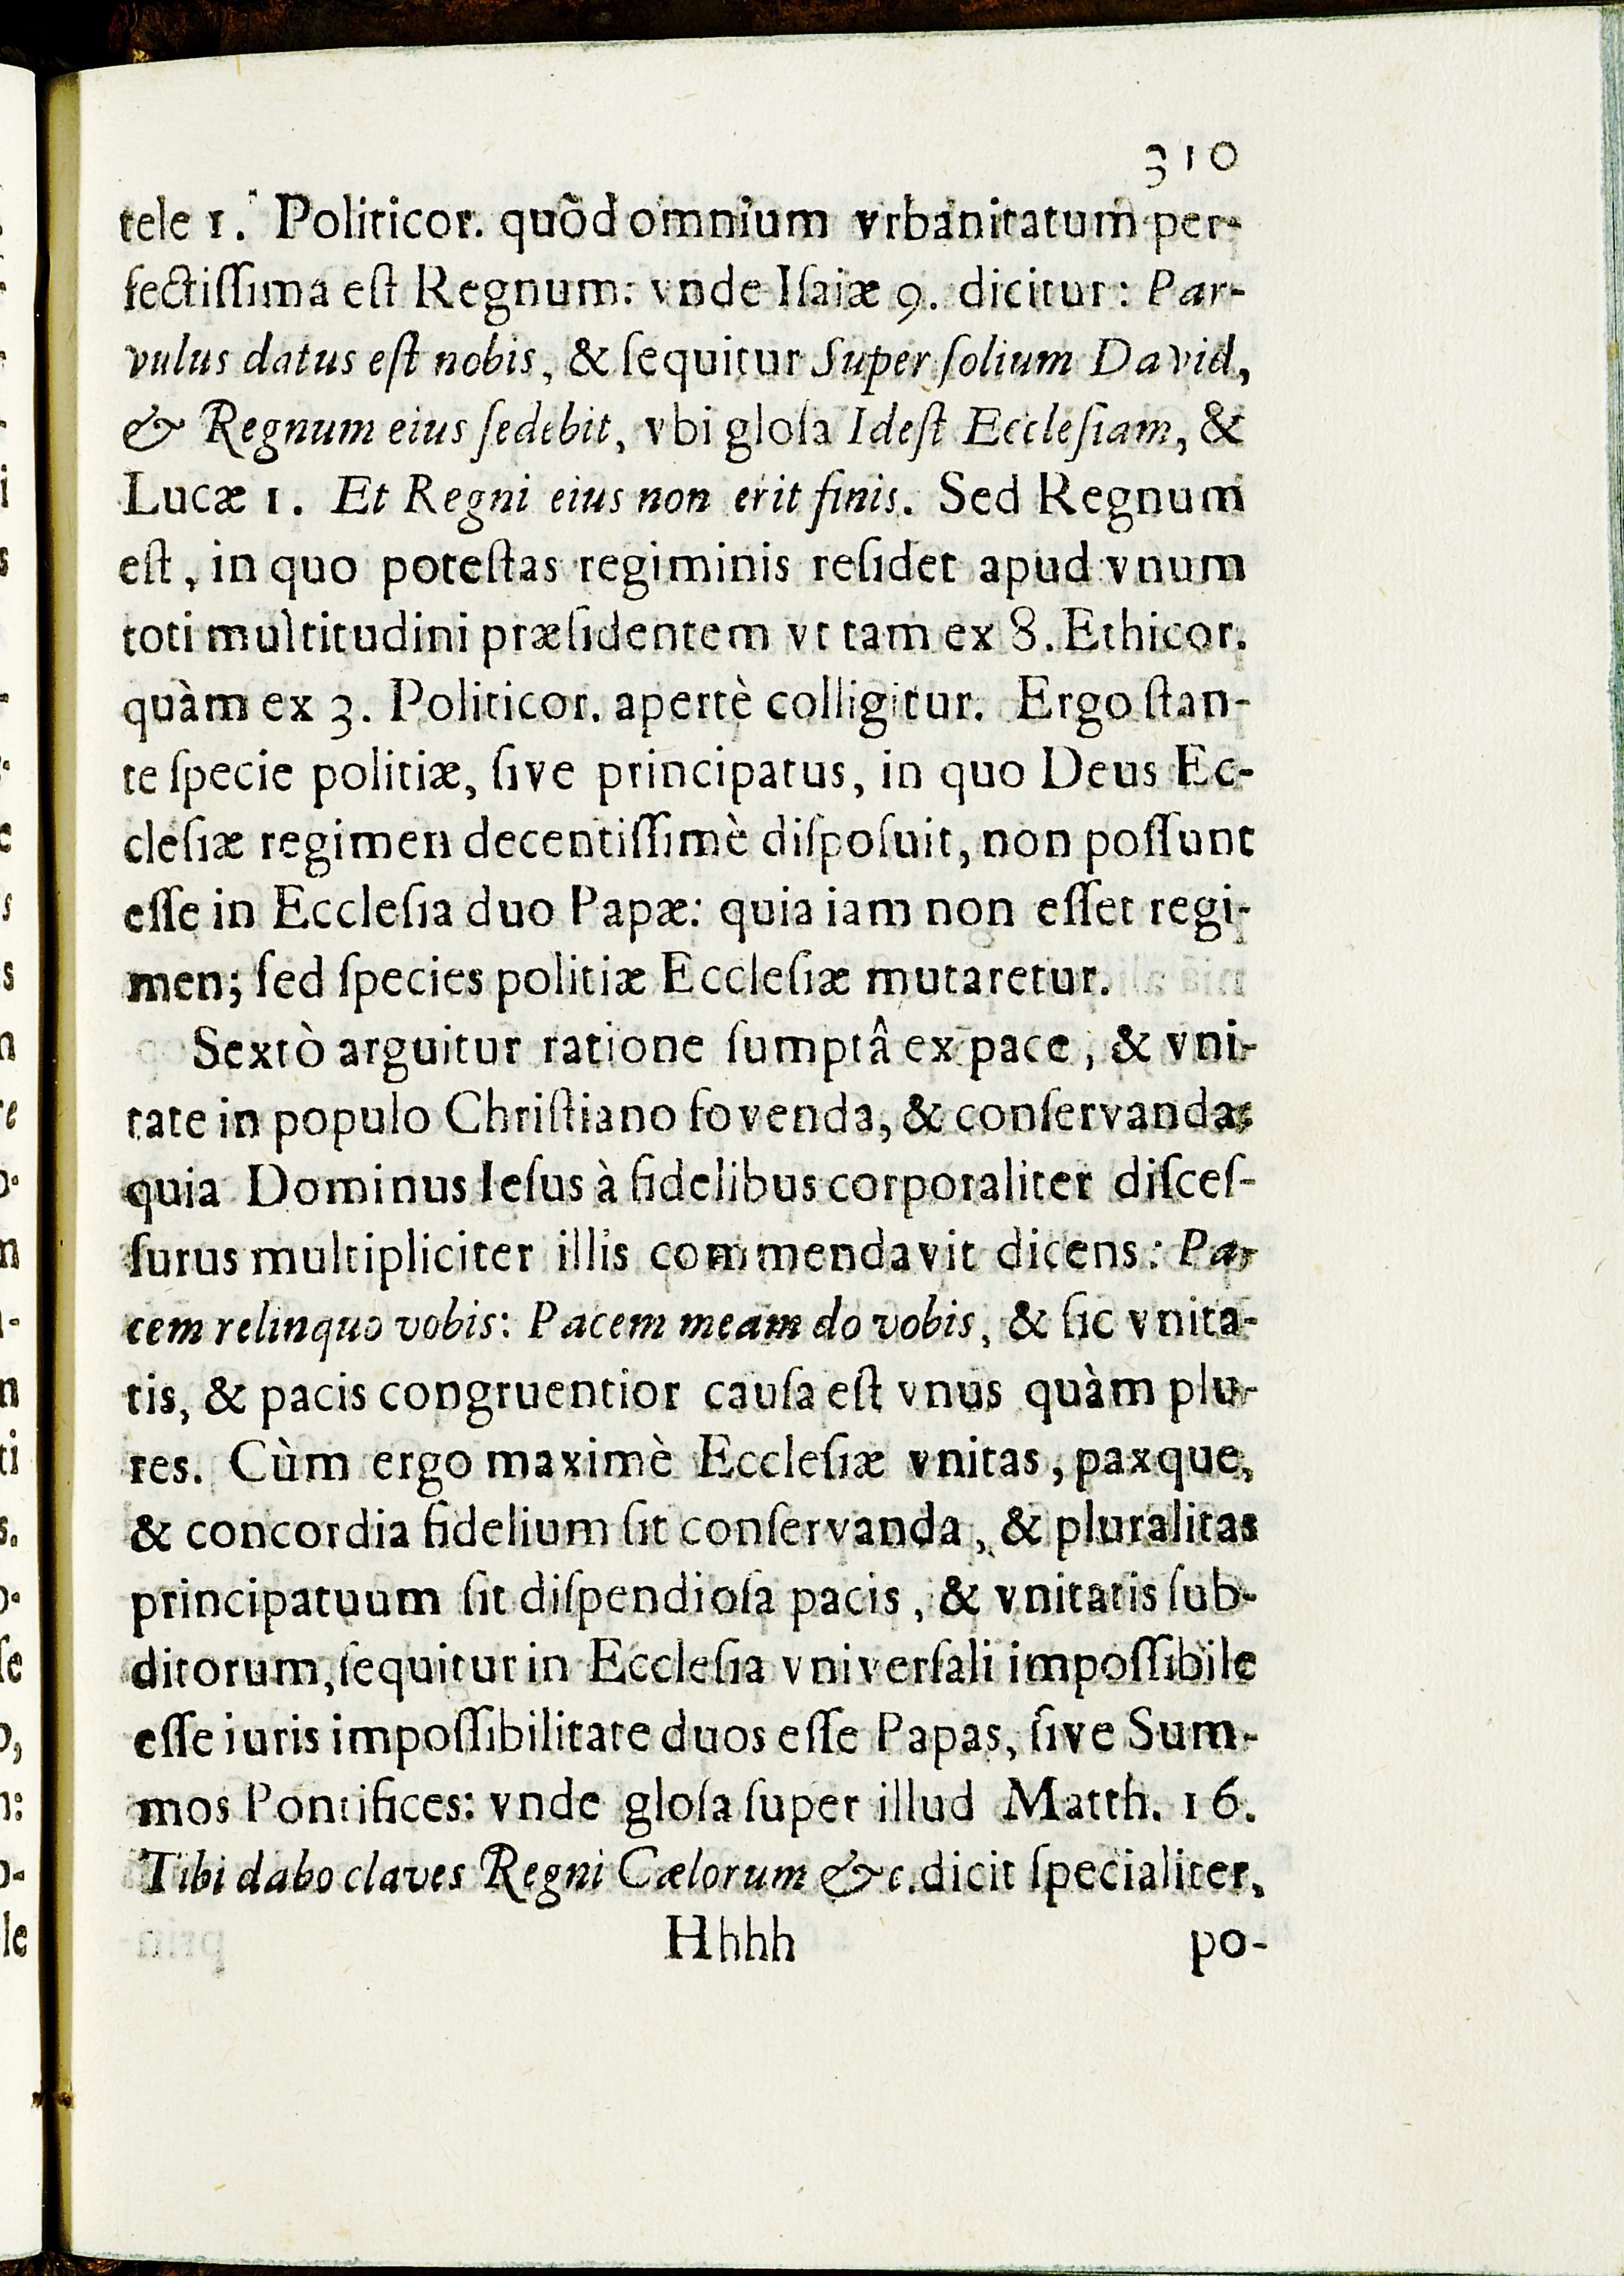 310
tele 1. Politicor. quõd omnium vrbanitatum per-
fectiſſima eſt Regnum: vnde Iſaiæ 9. dicitur: Par-
vulus datus eſt nobis, & ſequitur Super ſolium David,
& Regnum eius ſedebit, vbi gloſa Ideſt Eccleſiam, &
Lucæ 1. Et Regni eius non erit finis. Sed Regnum
eſt, in quo poteſtas regiminis reſidet apud vnum
toti multitudini præſidentem vt tam ex 8. Ethicor.
quàm ex 3. Politicor. apertè colligitur. Ergo ſtan-
te ſpecie politiæ, ſive principatus, in quo Deus Ec-
cleſiæ regimen decentiſſimè diſpoſuit, non poſſunt
eſſe in Eccleſia duo Papæ: quia iam non eſſet regi-
men; ſed ſpecies politiæ Eccleſiæ mutaretur.
Sextò arguitur ratione ſumptâ ex pace, & vni-
tate in populo Chriſtiano fovenda, & conſervanda:
quia Dominus Ieſus à fidelibus corporaliter diſceſ-
ſurus multipliciter illis commendavit dicens: Pa-
cem relinquo vobis: Pacem meam do vobis, & ſic vnita-
tis, & pacis congruentior cauſa eſt vnus quàm plu-
res. Cùm ergo maximè Eccleſiæ vnitas, paxque,
& concordia fidelium ſit conſervanda, & pluralitas
principatuum ſit diſpendioſa pacis, & vnitatis ſub-
ditorum, ſequitur in Eccleſia vniverſali impoſſibile
eſſe iuris impoſſibilitate duos eſſe Papas, ſive Sum-
mos Pontifices: vnde gloſa ſuper illud Matth. 16.
Tibi dabo claves Regni Cælorum &c. dicit ſpecialiter,
Hhhh po-